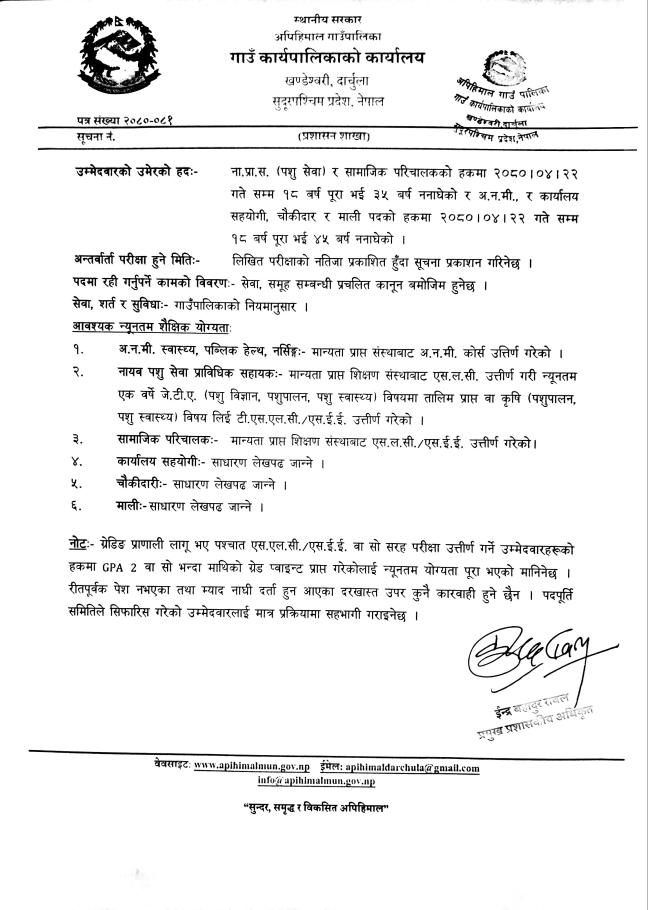 स्थानीय सरकार
अपिहिमाल गाउँपालिका
गाउँ कार्यपालिकाको कार्यालय
खण्डेश्वरी, दार्चुला
सुदूरपश्चिम प्रदेश, नेपाल
अपिहिमाल गाउँ पालिका
गाउँ कार्यपालिकाको कार्यालय
खण्डेश्वरी, दार्चुला
सुदूरपश्चिम प्रदेश, नेपाल
पत्र संख्या २०८०-०८१
सूचना नं.
(प्रशासन शाखा)
उम्मेदवारको उमेरको हदः- ना.प्रा.स. (पशु सेवा) र सामाजिक परिचालकको हकमा २०८०।०४।२२
गते सम्म १८ बर्ष पूरा भई ३५ बर्ष ननाघेको र अ.न.मी., र कार्यालय
सहयोगी, चौकीदार र माली पदको हकमा २०८०।०४।२२ गते सम्म
१८ बर्ष पूरा भई ४५ बर्ष ननाघेको ।
अन्तर्बार्ता परीक्षा हुने मितिः- लिखित परीक्षाको नतिजा प्रकाशित हुँदा सूचना प्रकाशन गरिनेछ ।
पदमा रही गर्नुपर्ने कामको विवरणः- सेवा, समूह सम्बन्धी प्रचलित कानून बमोजिम हुनेछ ।
सेवा, शर्त र सुविधाः- गाउँपालिकाको नियमानुसार ।
आवश्यक न्यूनतम शैक्षिक योग्यताः
१. अ.न.मी. स्वास्थ्य, पब्लिक हेल्थ, नर्सिङ्गः- मान्यता प्राप्त संस्थाबाट अ.न.मी. कोर्स उत्तिर्ण गरेको ।
२. नायव पशु सेवा प्राविधिक सहायकः- मान्यता प्राप्त शिक्षण संस्थाबाट एस.ल.सी. उत्तीर्ण गरी न्यूनतम
एक वर्षे जे.टी.ए. (पशु विज्ञान, पशुपालन, पशु स्वास्थ्य) विषयमा तालिम प्राप्त वा कृषि (पशुपालन,
पशु स्वास्थ्य) विषय लिई टी.एस.एल.सी./एस.ई.ई. उत्तीर्ण गरेको ।
३. सामाजिक परिचालकः- मान्यता प्राप्त शिक्षण संस्थाबाट एस.ल.सी./एस.ई.ई. उत्तीर्ण गरेको।
४. कार्यालय सहयोगीः- साधारण लेखपढ जान्ने ।
५. चौकीदारीः- साधारण लेखपढ जान्ने ।
६. मालीः- साधारण लेखपढ जान्ने ।
नोटः- ग्रेडिङ प्राणाली लागू भए पश्चात एस.एल.सी./एस.ई.ई. वा सो सरह परीक्षा उत्तीर्ण गर्ने उम्मेदवारहरूको
हकमा GPA 2 वा सो भन्दा माथिको ग्रेड प्वाइन्ट प्राप्त गरेकोलाई न्यूनतम योग्यता पूरा भएको मानिनेछ ।
रीतपूर्वक पेश नभएका तथा म्याद नाघी दर्ता हुन आएका दरखास्त उपर कुनै कारवाही हुने छैन । पदपूर्ति
समितिले सिफारिस गरेको उम्मेदवारलाई मात्र प्रक्रियामा सहभागी गराइनेछ ।
ईन्द्र बहादुर रावल
प्रमुख प्रशासकीय अधिकृत
वेवसाइटः www.apihimalmun.gov.np ईमेलः apihimaldarchula@gmail.com
info@apihimalmun.gov.np
“सुन्दर, समृद्ध र विकसित अपिहिमाल”